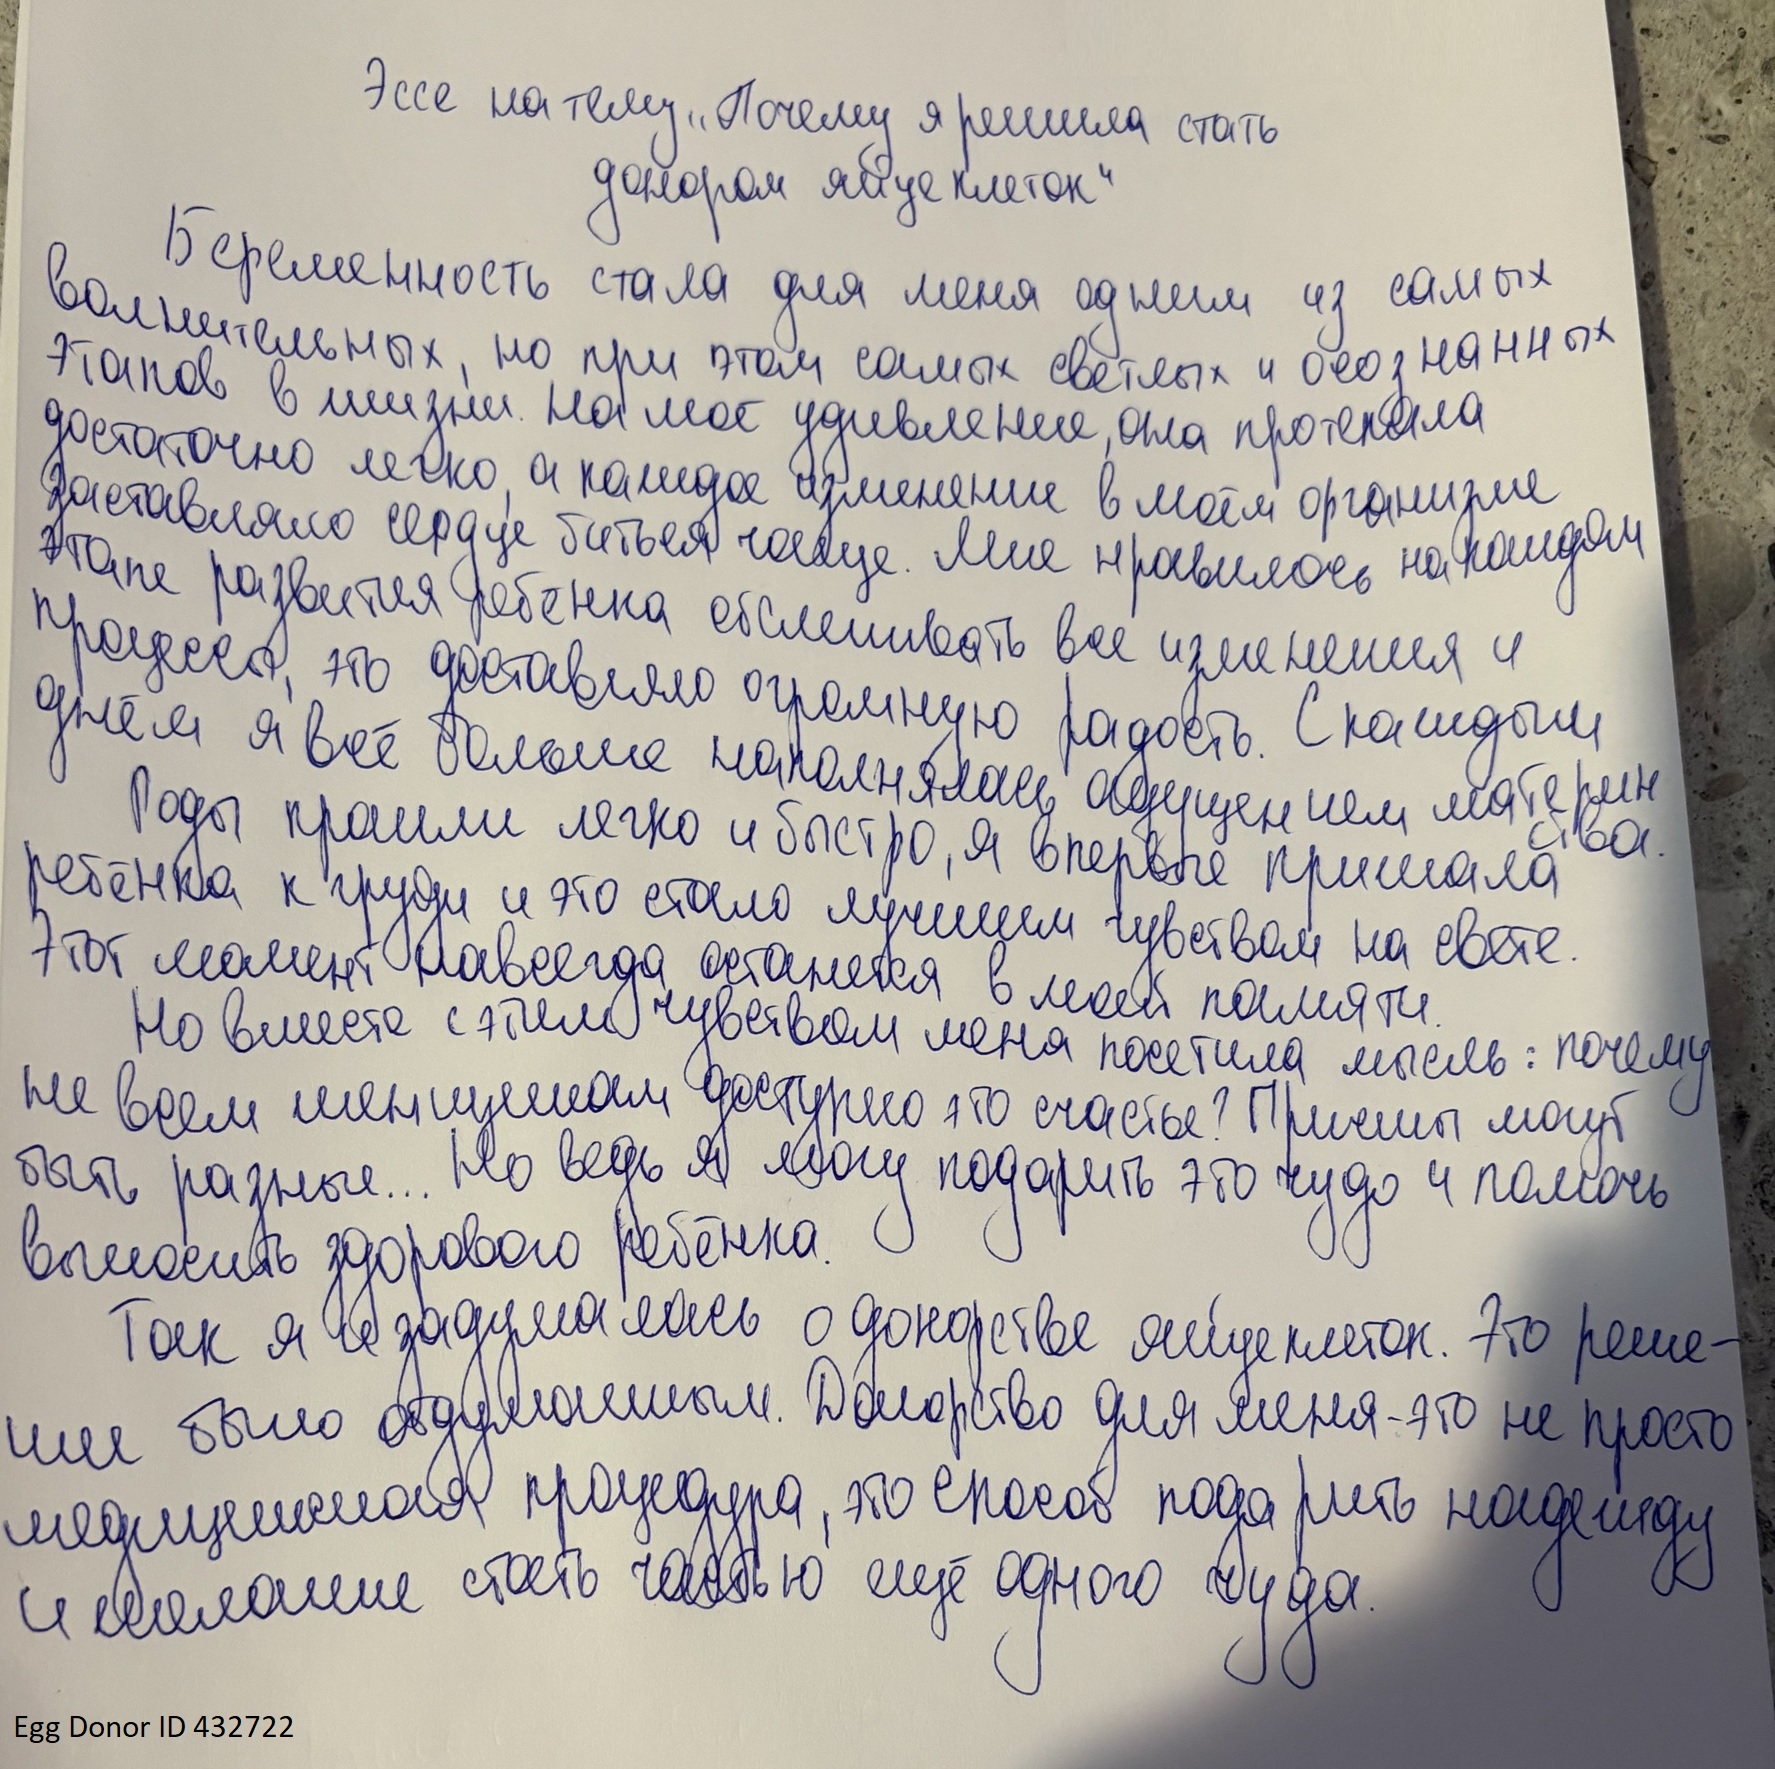 Эссе на тему „Почему я решила стать
донором яйцеклеток"
Беременность стала для меня одним из самых
волнительных, но при этом самых светлых и осознанных
этапов в жизни. На моё удивление, она протекала
достаточно легко, а каждое изменение в моём организме
заставляло сердце биться чаще. Мне нравилось на каждом
этапе развития ребёнка отслеживать все изменения и
процессы, это доставляло огромную радость. С каждым
днём я всё больше наполнялась ощущением материн
ства.
Роды прошли легко и быстро, я впервые прижала
ребёнка к груди и это стало лучшим чувством на свете.
Этот момент навсегда останется в моей памяти.
Но вместе с этим чувством меня посетила мысль: почему
не всем женщинам доступно это счастье? Причины могут
быть разные... Но ведь я могу подарить это чудо и помочь
выносить здорового ребёнка.
Так я и задумалась о донорстве яйцеклеток. Это реше-
ние было обдуманным. Донорство для меня - это не просто
медицинская процедура, это способ подарить надежду
и желание стать частью ещё одного чуда.
Egg Donor ID 432722